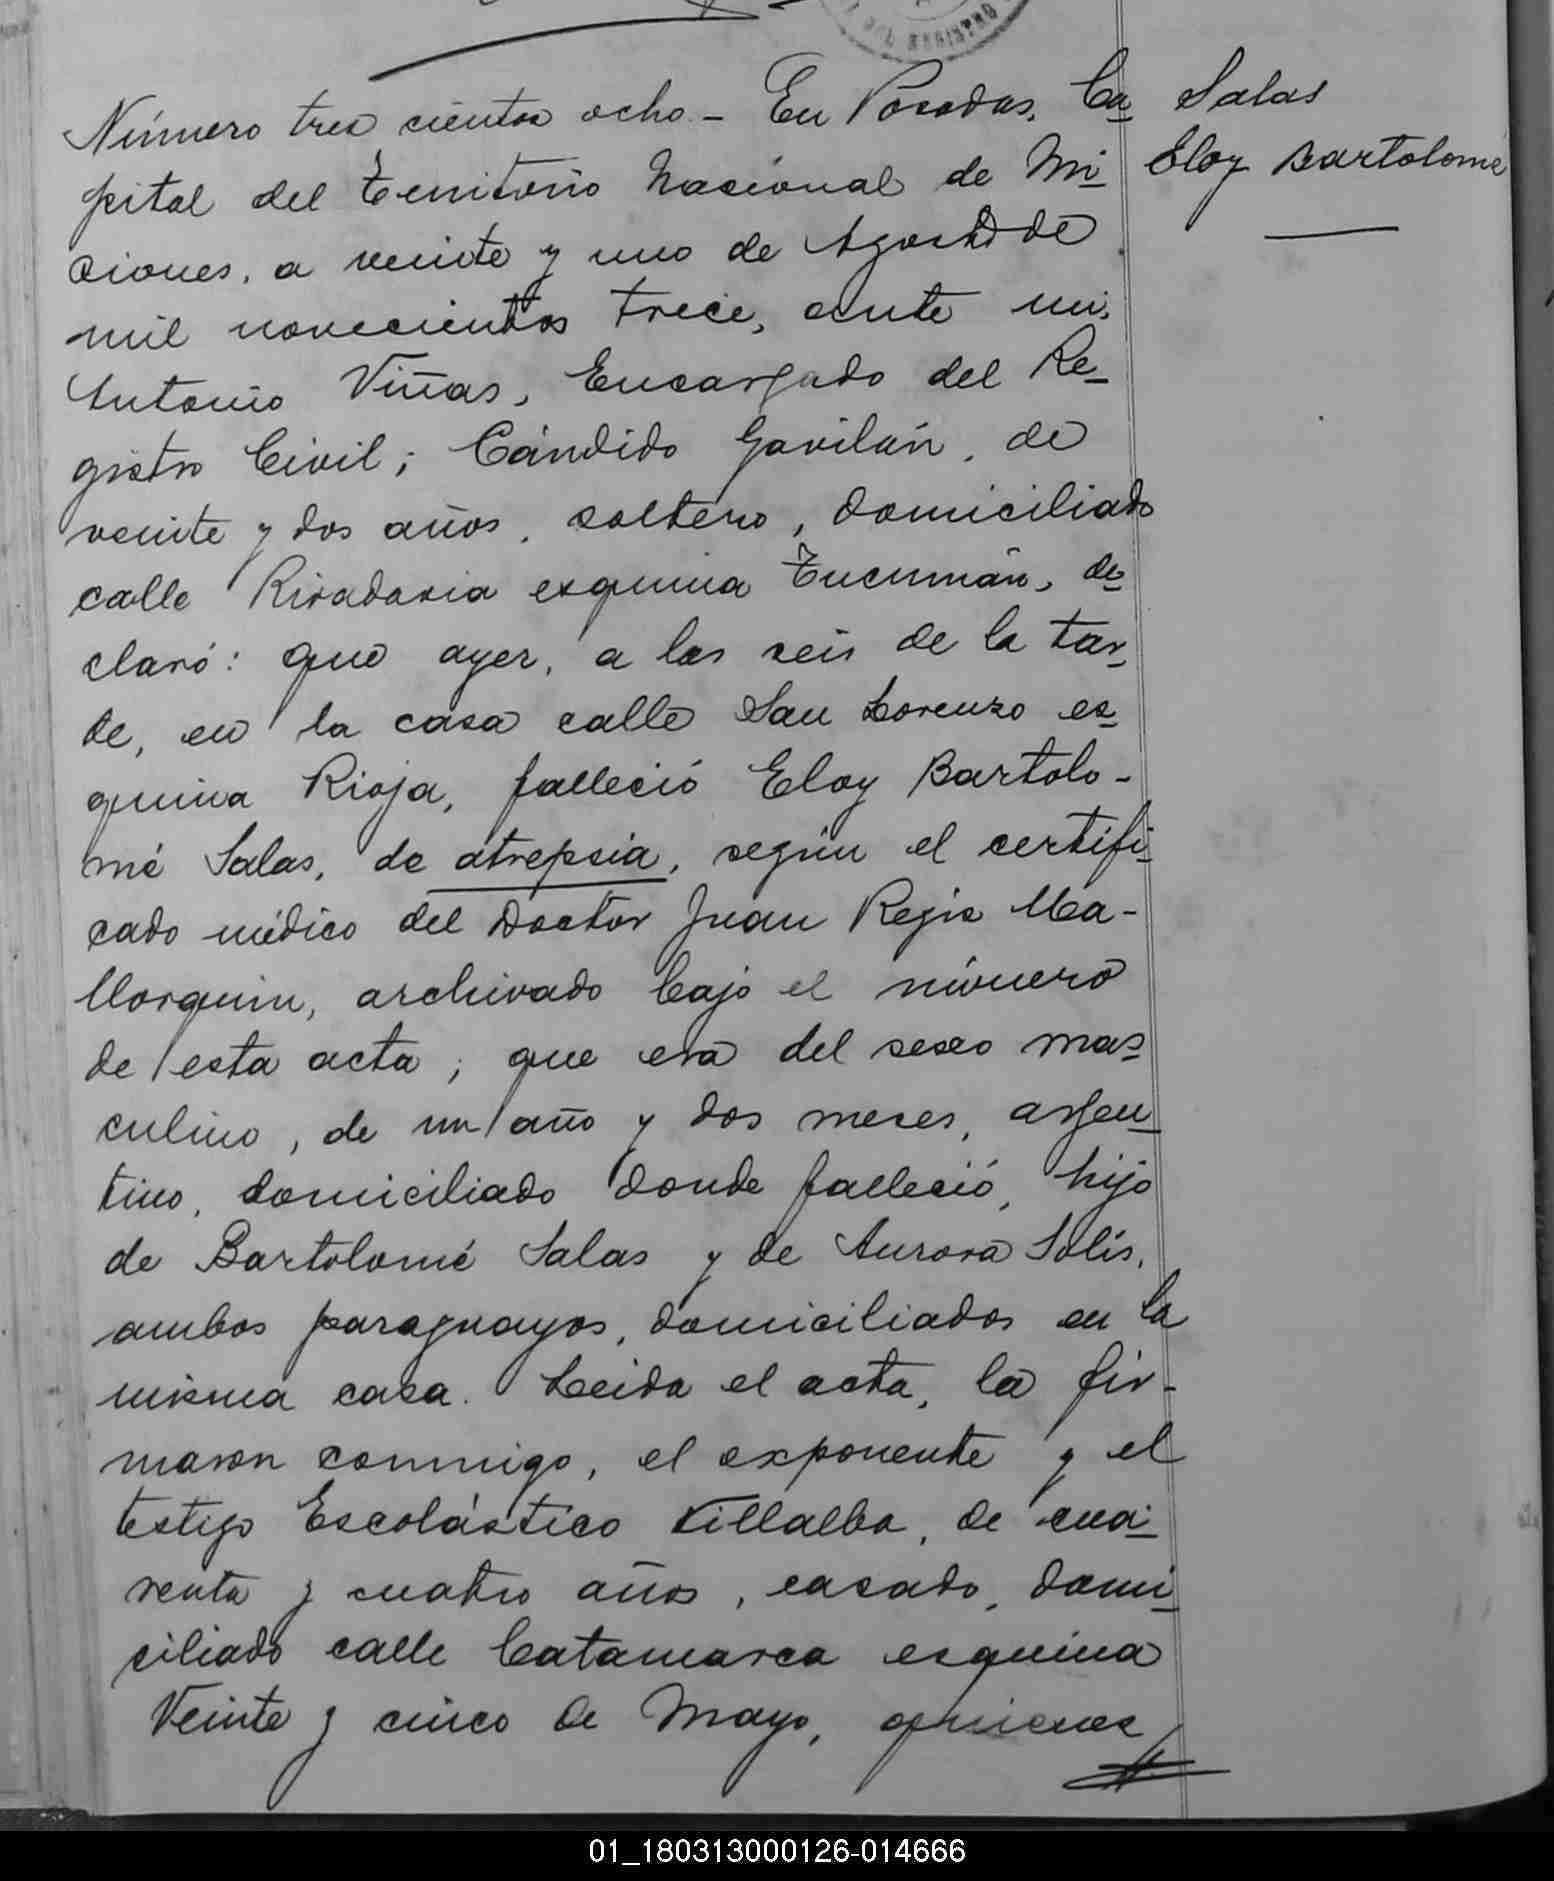 DEL REGISTRO
Número tres cientos ocho.- En Posadas, Ca_
pital del Territorio Nacional de Mi_
siones, a veinte y uno de Agosto de
mil novecientos trece, ante mi,
Antonio Viñas, Encargado del Re_
gistro Civil; Cándido Gavilán, de
veinte y dos años, soltero, domiciliado
calle Rivadavia esquina Tucumán, de_
claró: que ayer, a las seis de la tar_
de, en la casa calle San Lorenzo es_
quina Rioja, falleció Eloy Bartolo-
mé Salas, de atrepsia, según el certifi_
cado médico del Doctor Juan Regis Ma-
llorquin, archivado bajo el número
de esta acta; que era del sexo mas_
culino, de un año y dos meses, argen_
tino, domiciliado donde falleció, hijo
de Bartolomé Salas y de Aurora Solís,
ambos paraguayos, domiciliados en la
misma casa. Leida el acta, la fir-
maron conmigo, el exponente y el
testigo Escolástico Villalba, de cua_
renta y cuatro años, casado, domi_
ciliado calle Catamarca esquina
Veinte y cinco de Mayo, quienes
Salas
Eloy Bartolomé
01_180313000126-014666